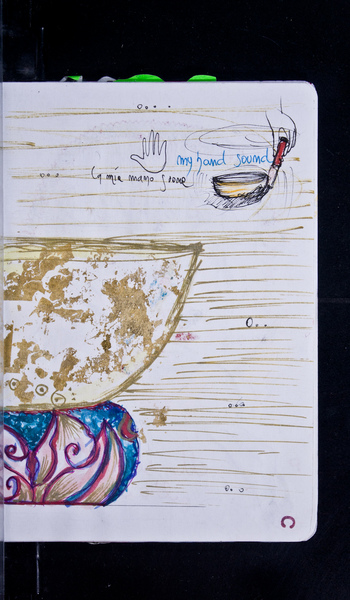 my hand sound
la mia mano suona
C